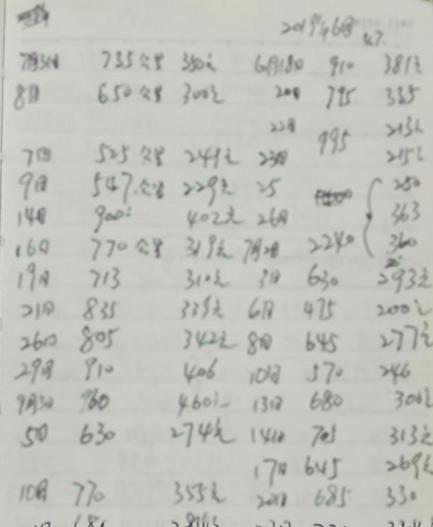 2019年6月
7月3日 735公里 350元 6月18日 910 381元
8日 650公里 300元 20日 795 335
22日 213元
7日 525公里 249元 23日 995 215元
9日 547公里 229元 25 250
14日 900 402元 26日 363
16日 770公里 319元 7月2日 2240 360
19日 713 310元 3日 630 293元
21日 835 339元 6日 475 200元
26日 805 342元 8日 645 277元
29日 910 406 10日 570 246
9月3日 960 460元 13日 680 300元
5日 630 274元 14日 705 313元
17日 645 269元
10日 770 355元 20日 685 330